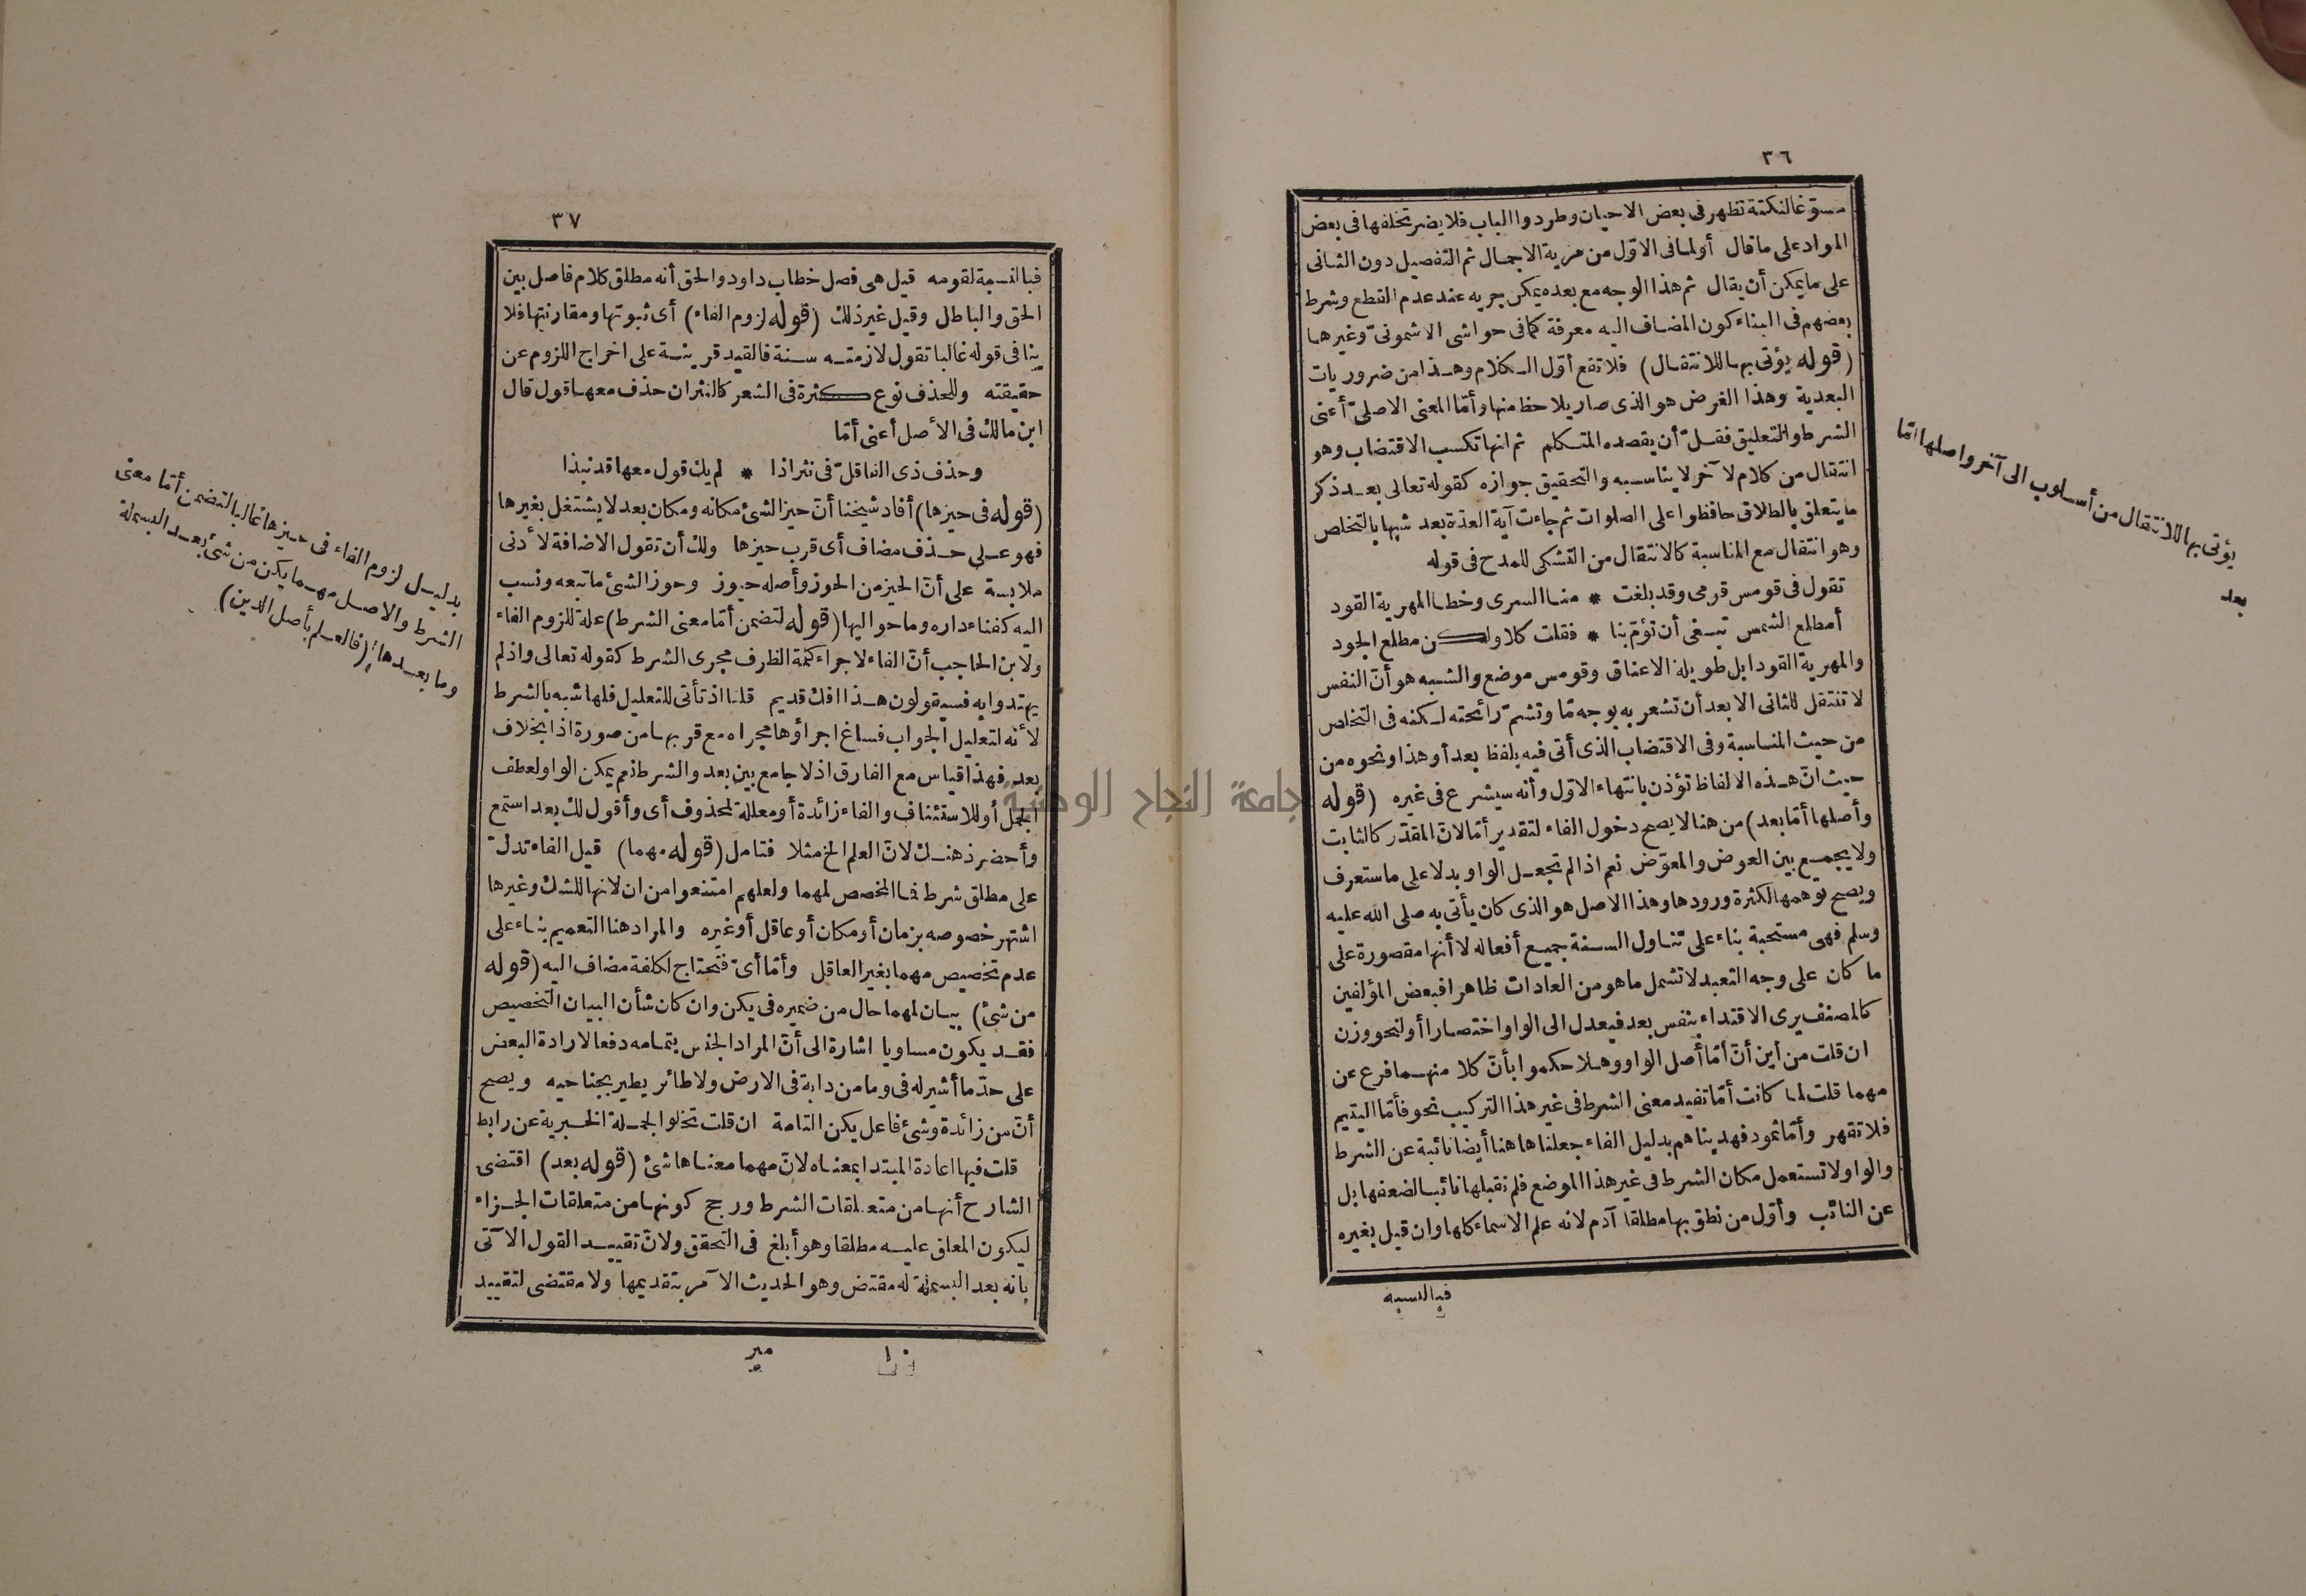 ٣٦
مسوّغا لنكتة تظهر فى بعض الاحيان وطردوا الباب فلا يضر تخلفها فى بعض
المواد على ما قال أولما فى الاوّل من مزية الاجمال ثم التفصيل دون الثانى
على ما يمكن أن يقال ثم هذا الوجه مع بعده يمكن جريه عند عدم القطع وشرط
بعضهم فى البناء كون المضاف اليه معرفة كما فى حواشى الاشمونىّ وغيرهما
(قوله يؤتى بها للانتقال) فلا تقع أوّل الكلام وهذا من ضروريات
البعدية وهذا الغرض هو الذى صار يلاحظ منها وأمّا المعنى الاصلىّ أعنى
الشرط والتعليق فقلّ أن يقصده المتكلم ثم انها تكسب الاقتضاب وهو
انتقال من كلام لآخر لا يناسبه والتحقيق جوازه كقوله تعالى بعد ذكر
ما يتعلق بالطلاق حافظوا على الصلوات ثم جاءت آية العدّة بعد شبها بالتخلص
وهو انتقال مع المناسبة كالانتقال من التشكى للمدح فى قوله
تقول فى قومس قومى وقد بلغت * منا السرى وخطا المهرية القود
أمطلع الشمس تبغى أن تؤمّ بنا * فقلت كلا ولكن مطلع الجود
والمهرية القود ابل طويلة الاعناق وقومس موضع والشبه هو أنّ النفس
لا تنتقل للثانى الا بعد أن تشعر به بوجه مّا وتشمّ رائحته لكنه فى التخلص
من حيث المناسبة وفى الاقتضاب الذى أتى فيه بلفظ بعد أو هذا ونحوه من
حيث انّ هذه الالفاظ تؤذن بانتهاء الاوّل وأنه سيشرع فى غيره (قوله
وأصلها أمّا بعد) من هنا لا يصح دخول الفاء لتقدير أمّا لانّ المقدّر كالثابت
ولا يجمع بين العوض والمعوّض نعم اذا لم تجعل الواو بدلا على ما ستعرف
ويصح توهمها لكثرة ورودها وهذا الاصل هو الذى كان يأتى به صلى الله عليه
وسلم فهى مستحبة بناء على تناول السنة جميع أفعاله لا أنها مقصورة على
ما كان على وجه التعبد لا تشمل ما هو من العادات ظاهرا فبعض المؤلفين
كالمصنف يرى الاقتداء بنفس بعد فيعدل الى الواو اختصارا أو لنحو وزن
ان قلت من أين أنّ أمّا أصل الواو وهلا حكموا بأنّ كلا منهما فرع عن
مهما قلت لما كانت أمّا تفيد معنى الشرط فى غير هذا التركيب نحو فأمّا اليتيم
فلا تقهر وأمّا ثمود فهديناهم بدليل الفاء جعلناها هنا أيضا نائبة عن الشرط
والواو لا تستعمل مكان الشرط فى غير هذا الموضع فلم نقبلها نائبا لضعفها بل
عن النائب وأوّل من نطق بها مطلقا آدم لانه علم الاسماء كلها وان قيل بغيره
فبالنسبة
يؤتى بها للانتقال من أسلوب الى آخر واصلها امّا
بعد
٣٧
فبالنسبة لقومه قيل هى فصل خطاب داود والحق أنه مطلق كلام فاصل بين
الحق والباطل وقيل غير ذلك (قوله لزوم الفاء) أى ثبوتها ومقارنتها فلا
ينافى قوله غالبا تقول لازمته سنة فالقيد قرينة على اخراج اللزوم عن
حقيقته وللحذف نوع كثرة فى الشعر كالنثران حذف معها قول قال
ابن مالك فى الأصل أعنى أمّا
وحذف ذى الفا قلّ فى نثر اذا * لم يك قول معها قد نبذا
(قوله فى حيزها) أفاد شيخنا أنّ حيز الشئ مكانه ومكان بعد لا يشتغل بغيرها
فهو على حذف مضاف أى قرب حيزها ولك أن تقول الاضافة لأدنى
ملابسة على أنّ الحيز من الحوز وأصله حيوز وحوز الشئ ما تبعه ونسب
اليه كفناء داره وما حواليها (قوله لتضمن أمّا معنى الشرط) علة للزوم الفاء
ولابن الحاجب أنّ الفاء لاجراء كلمة الظرف مجرى الشرط كقوله تعالى واذ لم
يهتدوا به فسيقولون هذا افك قديم قلنا اذ تأتى للتعليل فلها شبه بالشرط
لأنه لتعليل الجواب فساغ اجراؤها مجراه مع قربها من صورة اذا بخلاف
بعد فهذا قياس مع الفارق اذ لا جامع بين بعد والشرط نعم يمكن الواو لعطف
الجمل أو للاستئناف والفاء زائدة أو معللة لمحذوف أى وأقول لك بعد استمع
وأحضر ذهنك لانّ العلم الخ مثلا فتامل (قوله مهما) قيل الفاء تدلّ
على مطلق شرط فما المخصص لمهما ولعلهم امتنعوا من ان لانها للشك وغيرها
اشتهر خصوصه بزمان أو مكان أو عاقل أو غيره والمراد هنا التعميم بناء على
عدم تخصيص مهما بغير العاقل وأمّا أىّ فتحتاج لكلفة مضاف اليه (قوله
من شئ) بيان لمهما حال من ضميره فى يكن وان كان شأن البيان التخصيص
فقد يكون مساويا اشارة الى أنّ المراد الجنس بتمامه دفعا لارادة البعض
على حدّ ما أشير له فى وما من دابة فى الارض ولا طائر يطير بجناحيه ويصح
أنّ من زائدة وشئ فاعل يكن التامة ان قلت تخلو الجملة الخبرية عن رابط
قلت فيها اعادة المبتدا بمعناه لانّ مهما معناها شئ (قوله بعد) اقتضى
الشارح أنها من متعلقات الشرط ورجح كونها من متعلقات الجزاء
ليكون المعلق عليه مطلقا وهو أبلغ فى التحقق ولانّ تقييد القول الآتى
بانه بعد البسملة له مقتض وهو الحديث الآمر بتقديمها ولا مقتضى لتقييد
مير
بدليل لزوم الفاء فى حيزها غالبا لتضمن أمّا معنى
الشرط والاصل مهما يكن من شئ بعد البسملة
وما بعدها (فالعلم بأصل الدين)
جامعة النجاح الوطنية